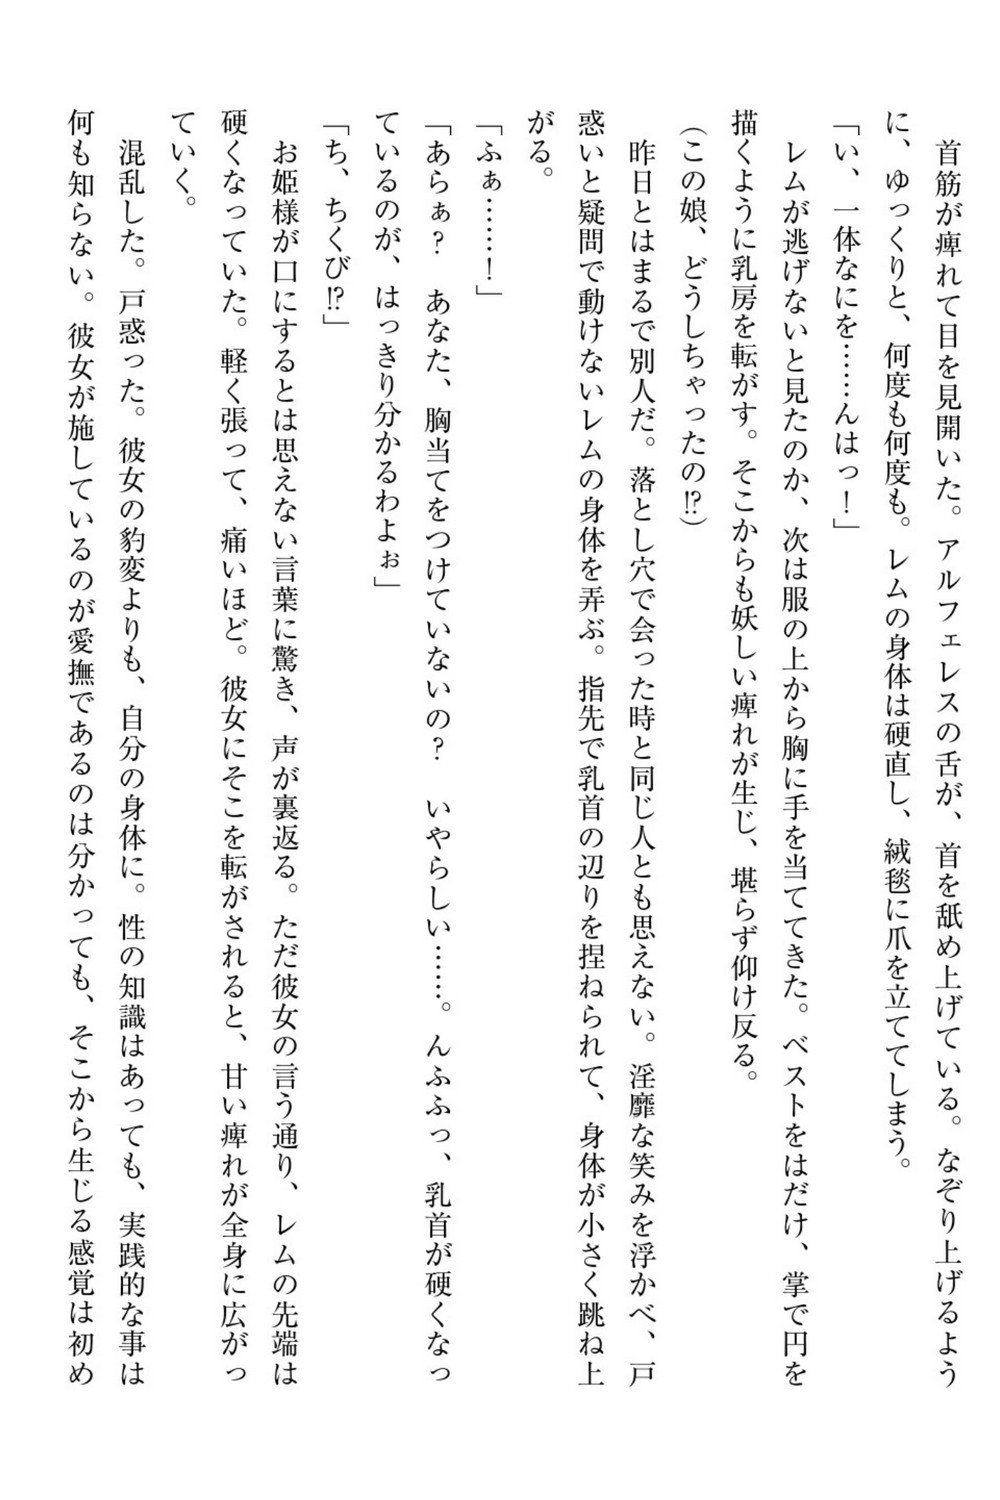 首筋が痺れて目を見開いた。アルフェレスの舌が、首を舐め上げている。なぞり上げるよう
に、ゆっくりと、何度も何度も。レムの身体は硬直し、絨毯に爪を立ててしまう。
「い、一体なにを……んはっ！」
　レムが逃げないと見たのか、次は服の上から胸に手を当ててきた。ベストをはだけ、掌で円を
描くように乳房を転がす。そこからも妖しい痺れが生じ、堪らず仰け反る。
（この娘、どうしちゃったの!?）
　昨日とはまるで別人だ。落とし穴で会った時と同じ人とも思えない。淫靡な笑みを浮かべ、戸
惑いと疑問で動けないレムの身体を弄ぶ。指先で乳首の辺りを捏ねられて、身体が小さく跳ね上
がる。
「ふぁ……！」
「あらぁ？　あなた、胸当てをつけていないの？　いやらしい……。んふふっ、乳首が硬くなっ
ているのが、はっきり分かるわよぉ」
「ち、ちくび!?」
　お姫様が口にするとは思えない言葉に驚き、声が裏返る。ただ彼女の言う通り、レムの先端は
硬くなっていた。軽く張って、痛いほど。彼女にそこを転がされると、甘い痺れが全身に広がっ
ていく。
　混乱した。戸惑った。彼女の豹変よりも、自分の身体に。性の知識はあっても、実践的な事は
何も知らない。彼女が施しているのが愛撫であるのは分かっても、そこから生じる感覚は初め